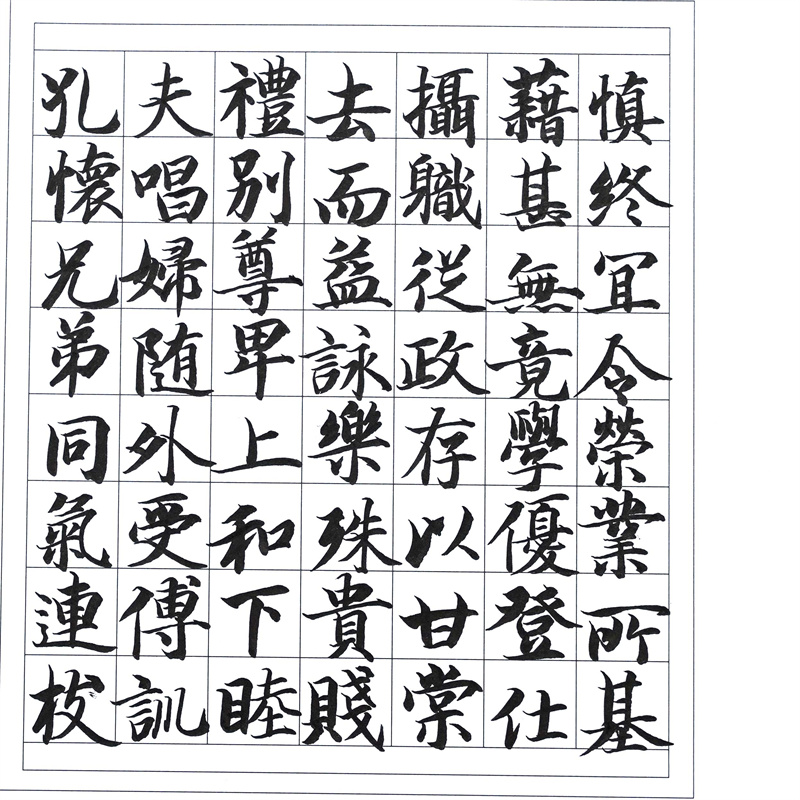 慎終冝令榮業所基
藉甚無竟學優登仕
攝職從政存以甘棠
去而益詠樂殊貴賤
禮別尊卑上和下睦
夫唱婦随外受傅訓
孔懷兄弟同氣連枝